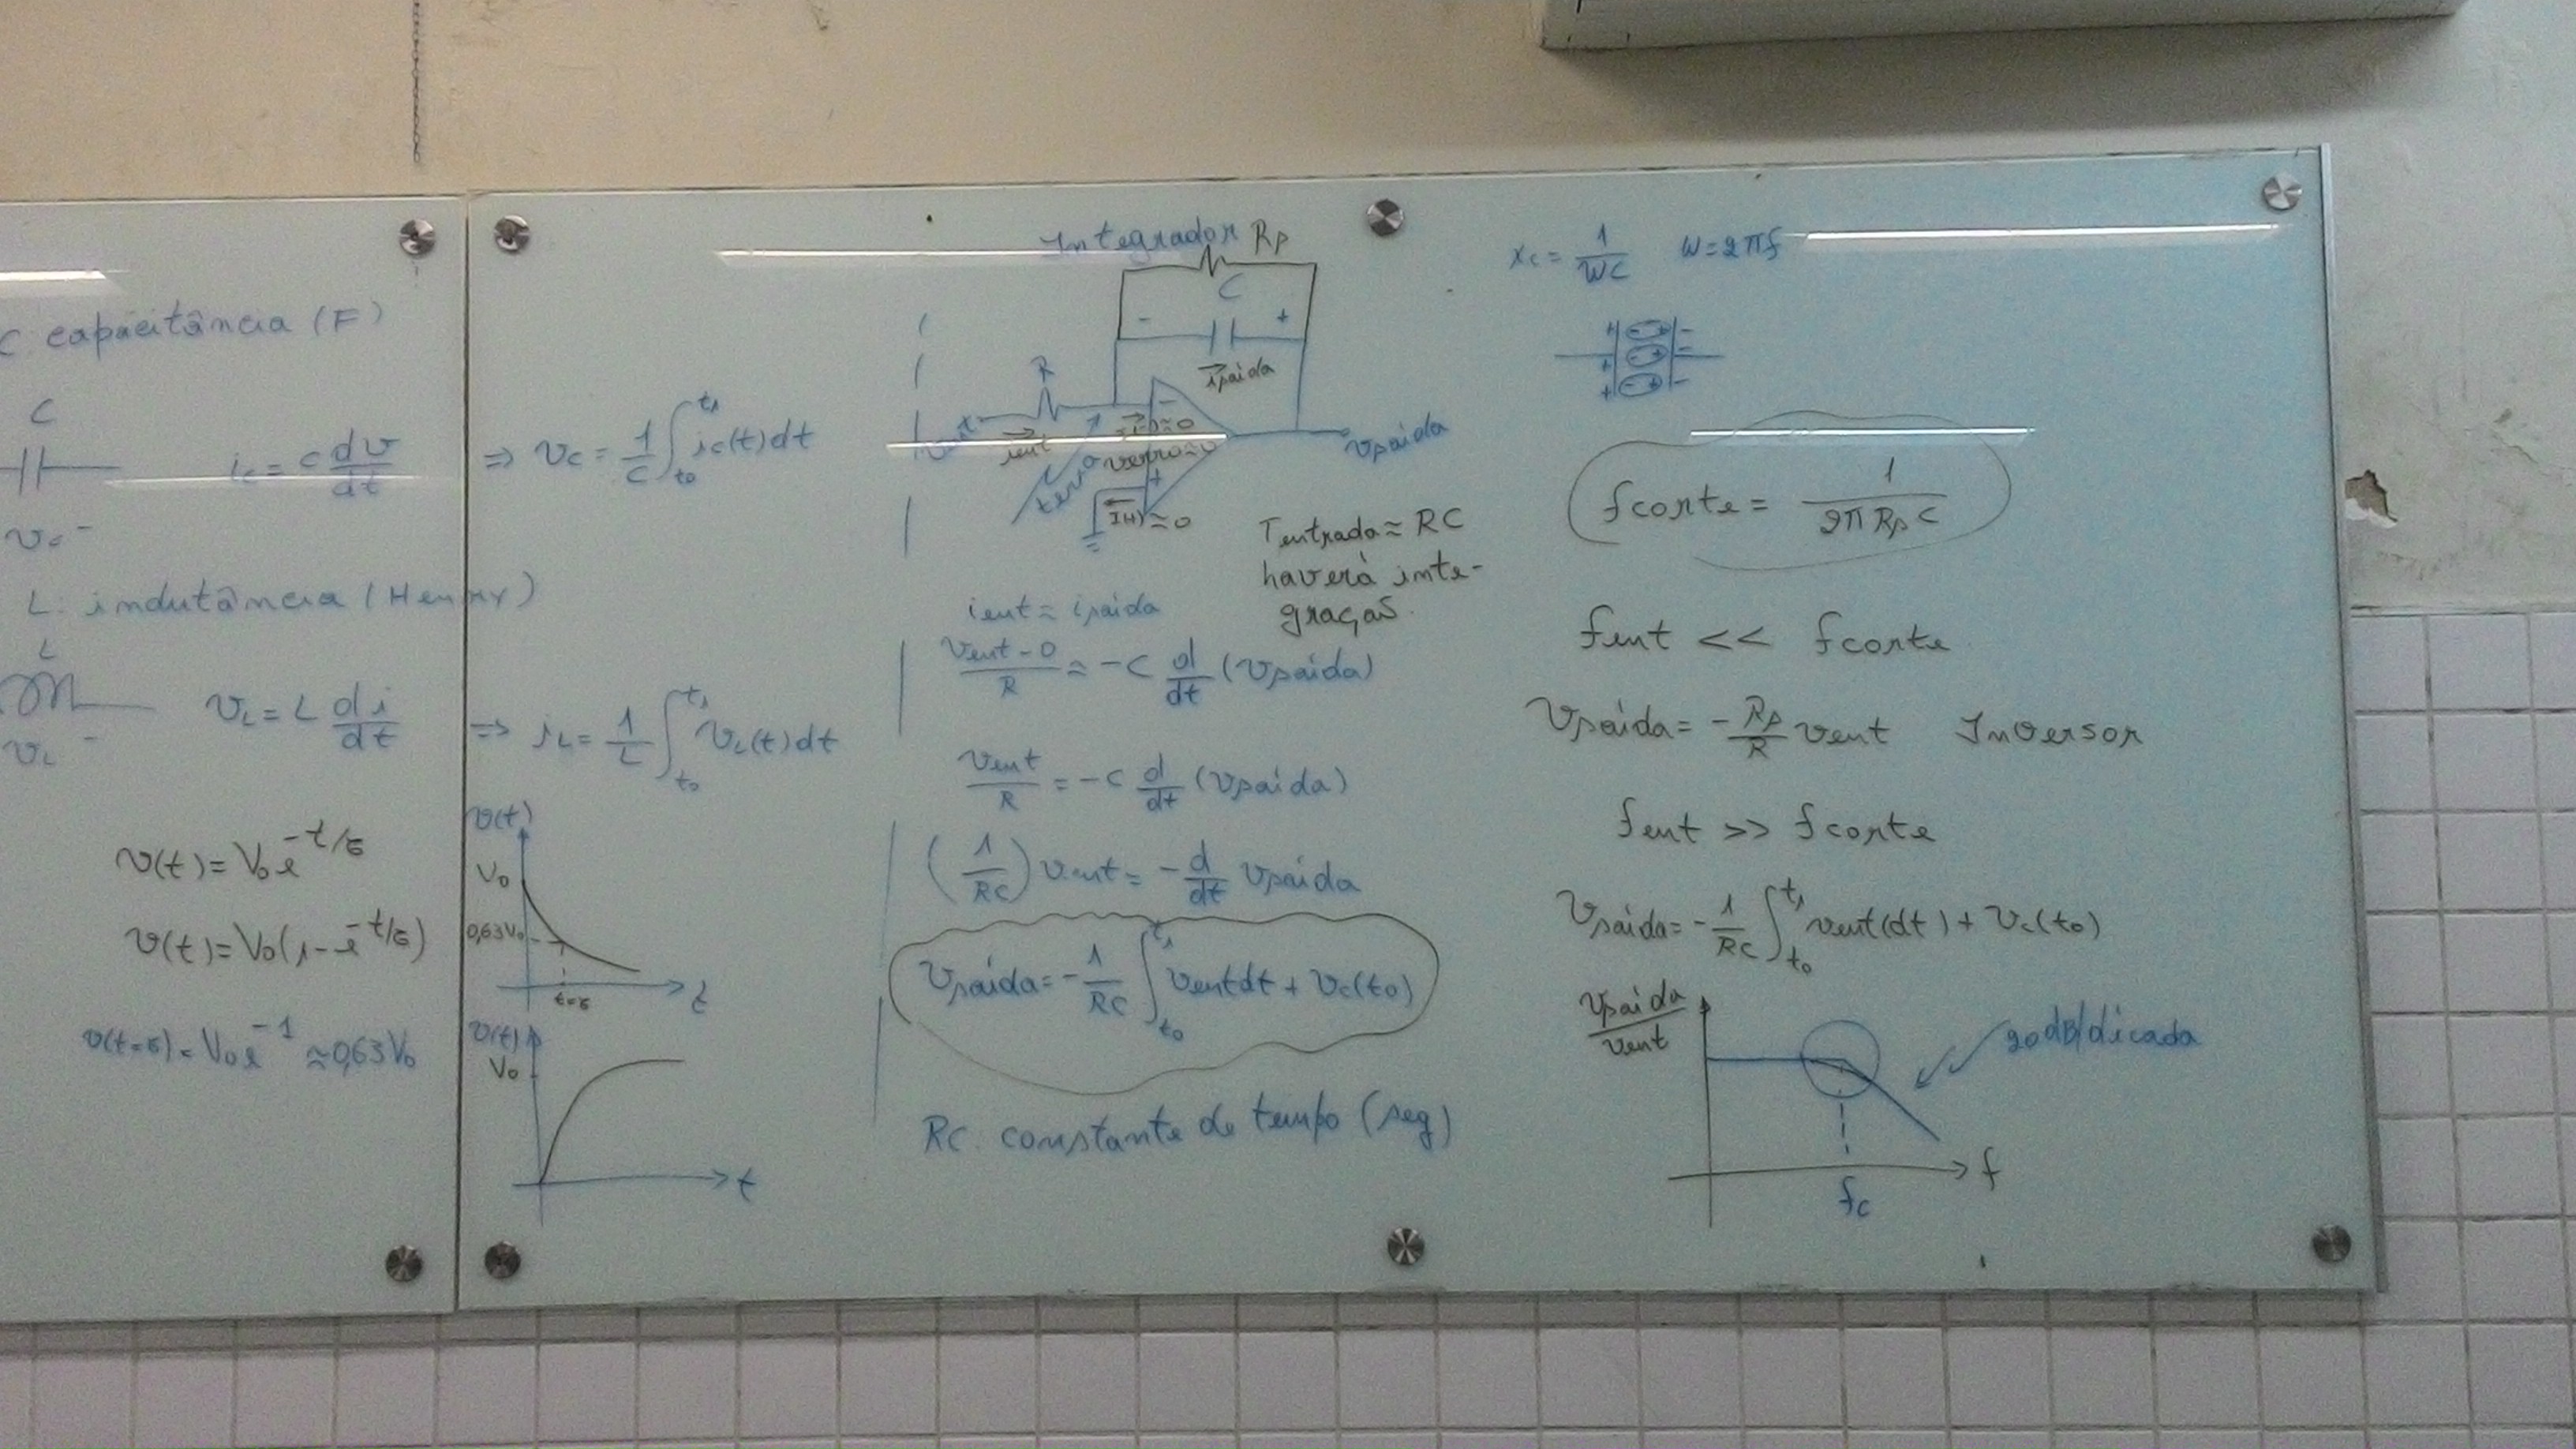 C capacitância (F)
C
ic = C dv/dt
⇒ vc = 1/C ∫t0 t1 ic(t)dt
vc -
L: indutância (Henry)
L
vL = L di/dt
⇒ iL = 1/L ∫t0 t1 vL(t)dt
vL -
v(t) = V0 e^-t/τ
v(t) = V0(1-e^-t/τ)
v(t=τ) = V0 e^-1 ≈ 0,63V0
v(t)
V0
0,63V0
t=τ
t
v(t)
V0
t
Integrador Rp
C
- +
isaída
R
vent
ient
terra
I(-)≈0
verro≈0
-
+
I(+)≈0
vsaída
Tentrada ≈ RC
haverá inte-
gração.
ient ≈ isaída
vent - 0/R ≈ -C d/dt (vsaída)
vent/R = -C d/dt (vsaída)
(1/RC) vent = -d/dt vsaída
vsaída = -1/RC ∫t0 t1 vent dt + vc(t0)
RC: constante de tempo (seg)
xc = 1/WC W = 2πf
fcorte = 1/2πRpC
fent << fcorte
vsaída = -Rp/R vent Inversor
fent >> fcorte
vsaída = -1/RC ∫t0 t1 vent(dt) + vc(t0)
vsaída/vent
20dB/década
f
fc